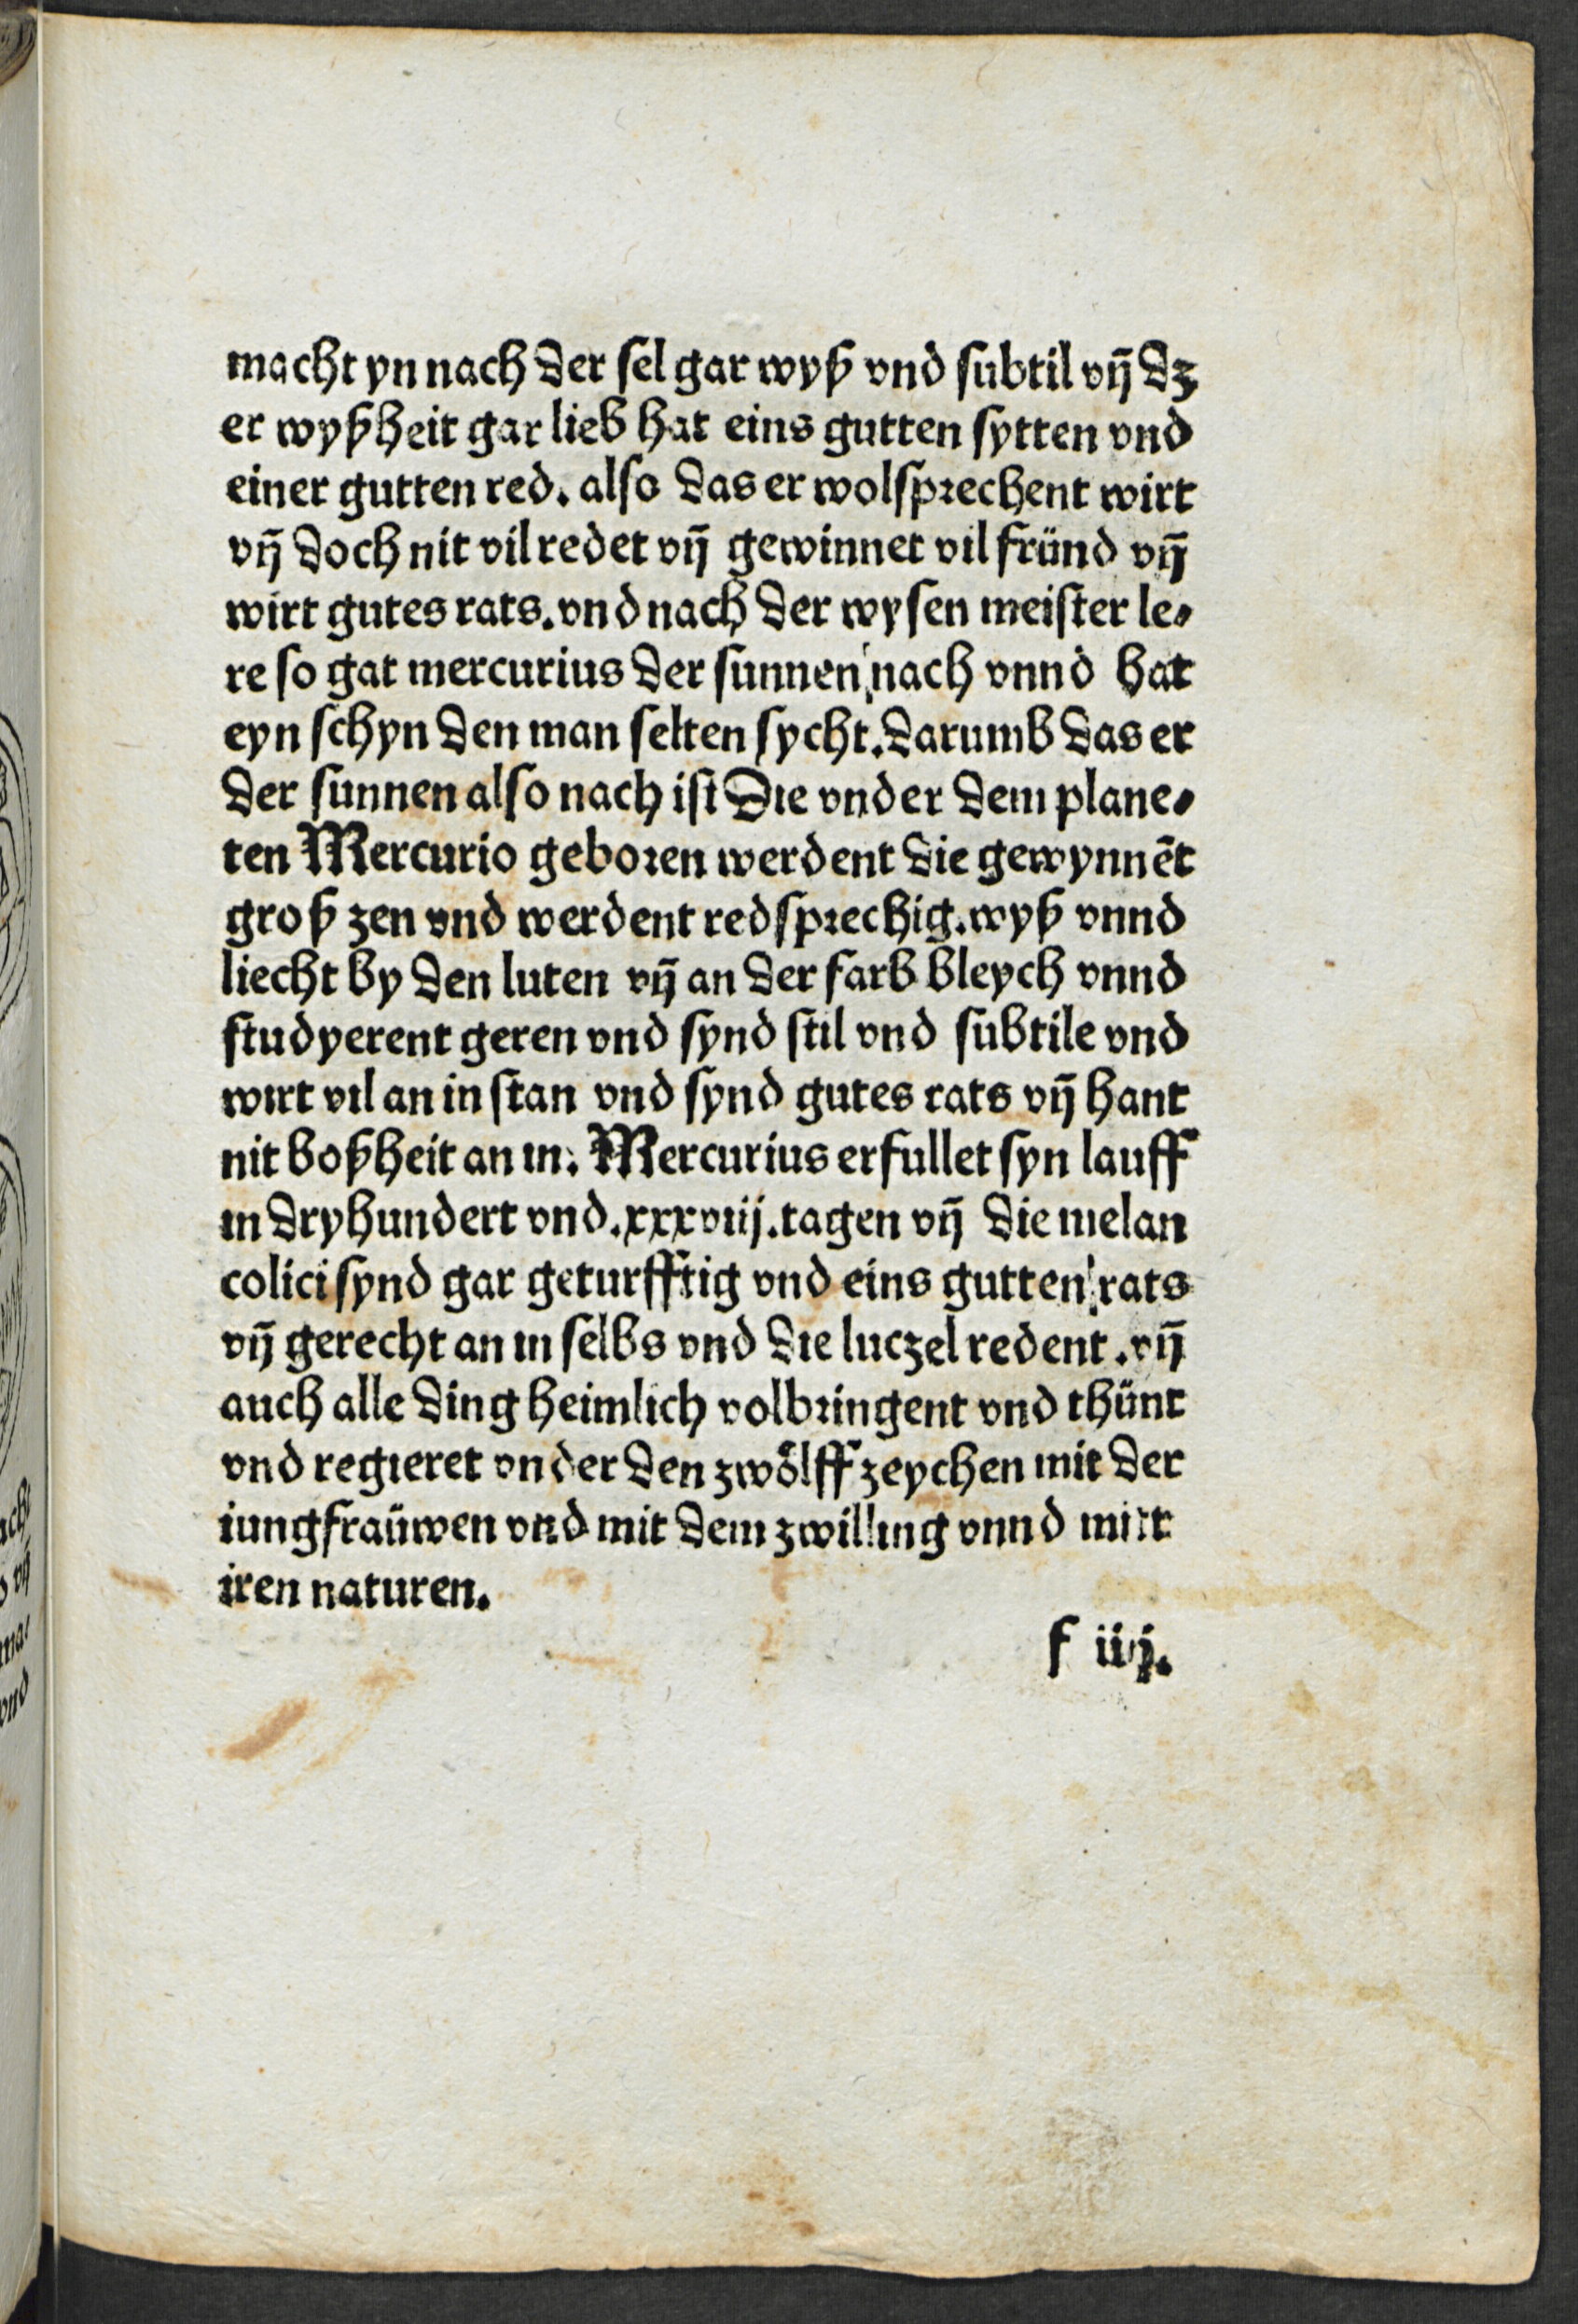 macht yn nach der sel gar wyß vnd subtil vñ dz
er wyßheit gar lieb hat eins gutten sytten vnd
einer gutten red. also das er wolsprechent wirt
vñ doch nit vil redet vñ gewinnet vil fründ vñ
wirt gutes rats. vnd nach der wysen meister le⸗
re so gat mercurius der sunnen nach vnnd hat
eyn schyn den man selten sycht. darumb das er
der sunnen also nach ist Die vnder dem plane⸗
ten Mercurio geboren werdent die gewynnēt
groß zen vnd werdent redsprechig. wyß vnnd
liecht by den luten vñ an der farb bleych vnnd
studyerent geren vnd synd stil vnd subtile vnd
wirt vil an in stan vnd synd gutes rats vñ hant
nit boßheit an in. Mercurius erfullet syn lauff
in dryhundert vnd .xxxviij. tagen vñ die melan
colici synd gar geturfftig vnd eins gutten rats
vñ gerecht an in selbs vnd die luczel redent. vñ
auch alle ding heimlich volbringent vnd thünt
vnd regieret vnder den zwölff zeychen mit der
iungfraüwen vnd mit dem zwilling vnnd mitt
iren naturen.
f iiij.